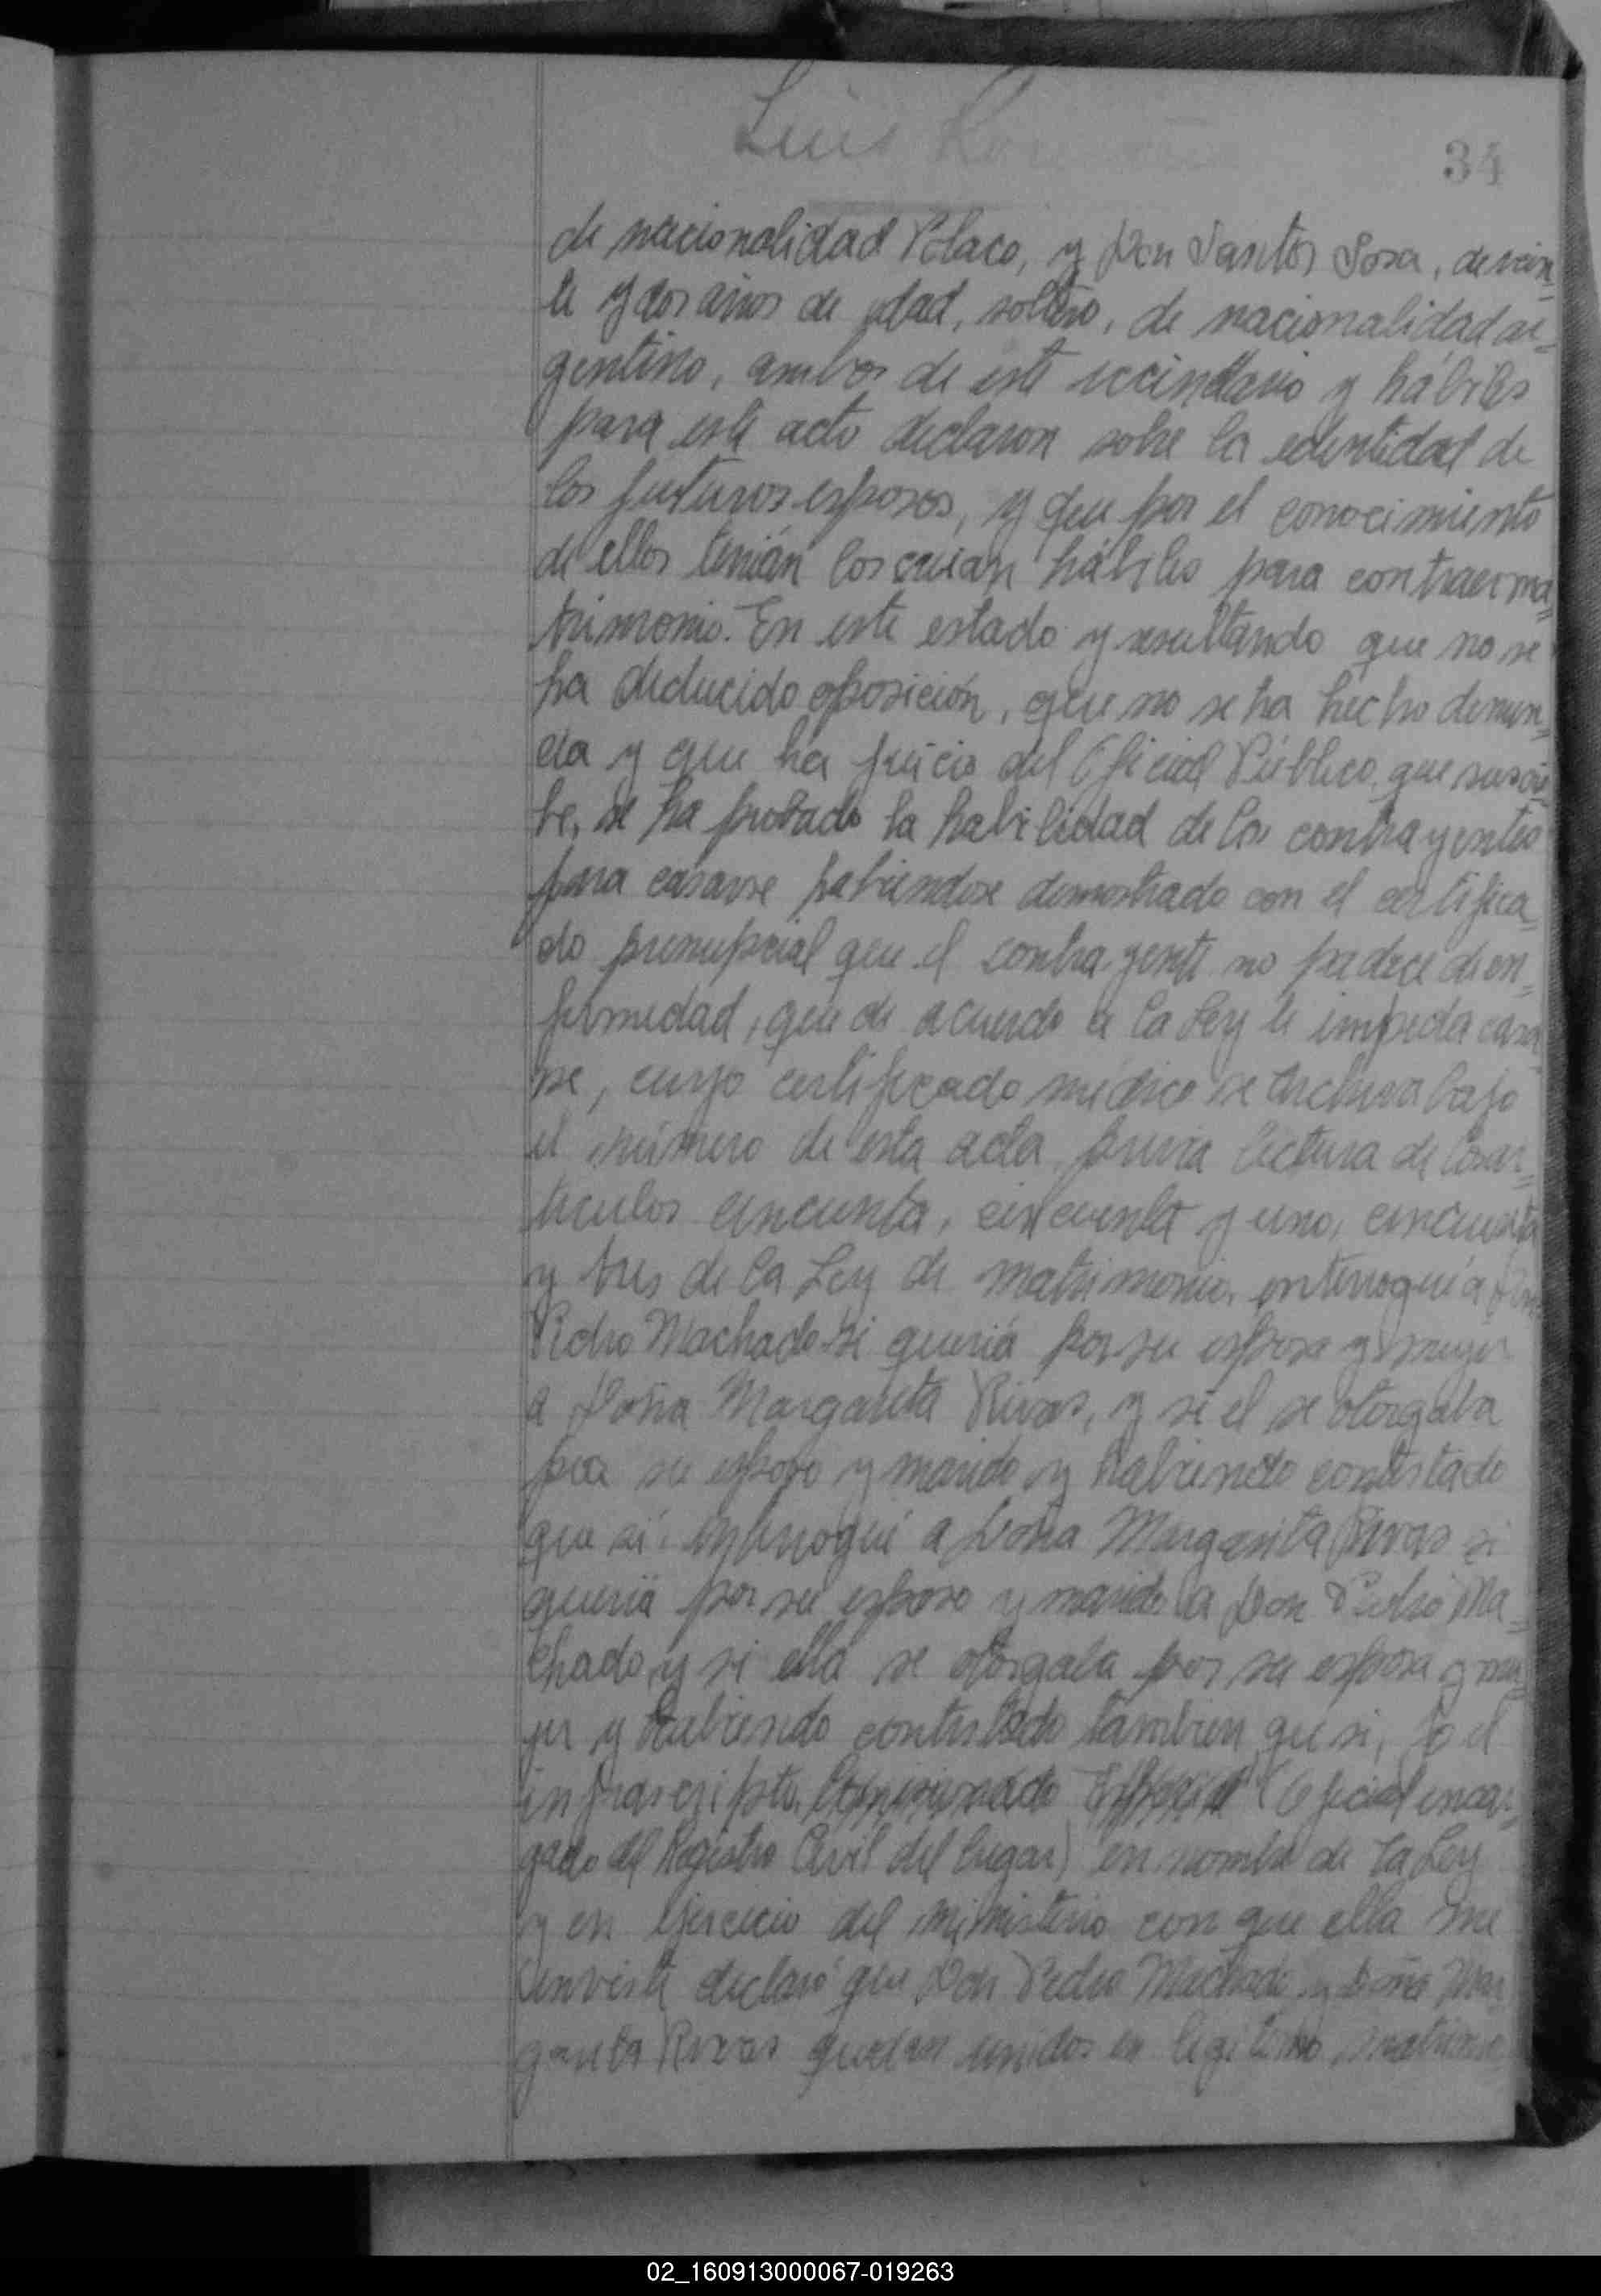 Luis
34
de nacionalidad Polaco, y Don Santos Sosa, de vein=
te y dos años de edad, soltero, de nacionalidad ar=
gentino, ambos de este vecindario y hábiles
para este acto declaron sobre la edentidad de
los futuros esposos, y que por el conocimiento
de ellos tenián los creian hábiles para contraer ma=
trimonio. En este estado y resultando que no se
ha deducido oposición, que no se ha hecho denun=
cia y que ha juicio del Oficial Público que suscri=
be, se ha probado la habilidad de los contrayentes
para casarse habiendose demostrado con el certifica=
do prenupcial que el contrayente no padece de en=
fermedad, que de acuerdo a la Ley le impeda casar
se, cuyo certificado médico se archiva bajo
el número de esta acta, previa lectura de los ar=
ticulos cincuenta, cincuenta y uno, cincuenta
y tres de la Ley de matrimonio, interrogué a Don
Pedro Machado si queriá por su esposa y mujer
a Doña Margarita Rivas, y si el se otorgaba
por su esposo y marido y habiendo contestado
que si, interrogué a Doña Margarita Rivas si
queriá por su esposo y marido a Don Pedro Ma=
chado, y si ella se otorgaba por su esposa y mu=
jer y habiendo contestado tambien que si, Yo el
infrascripto, Comisionado (Oficial encar=
gado del Registro Civil del lugar) en nombre de la Ley
y en ejercicio del ministerio con que ella me
inviste declaró que Don Pedro Machado y Doña Mar
garita Rivas quedan unidos en legitimo matrimo
02_160913000067-019263